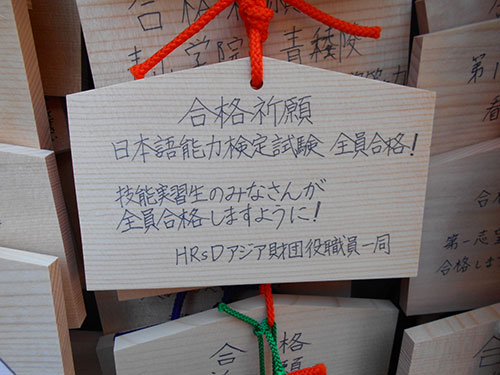 合格
学院 青稜
合格祈願
日本語能力検定試験 全員合格!
技能実習生のみなさんが
全員合格しますように!
HRsDアジア財団役職員一同
第1
第一志
合格しま
合格